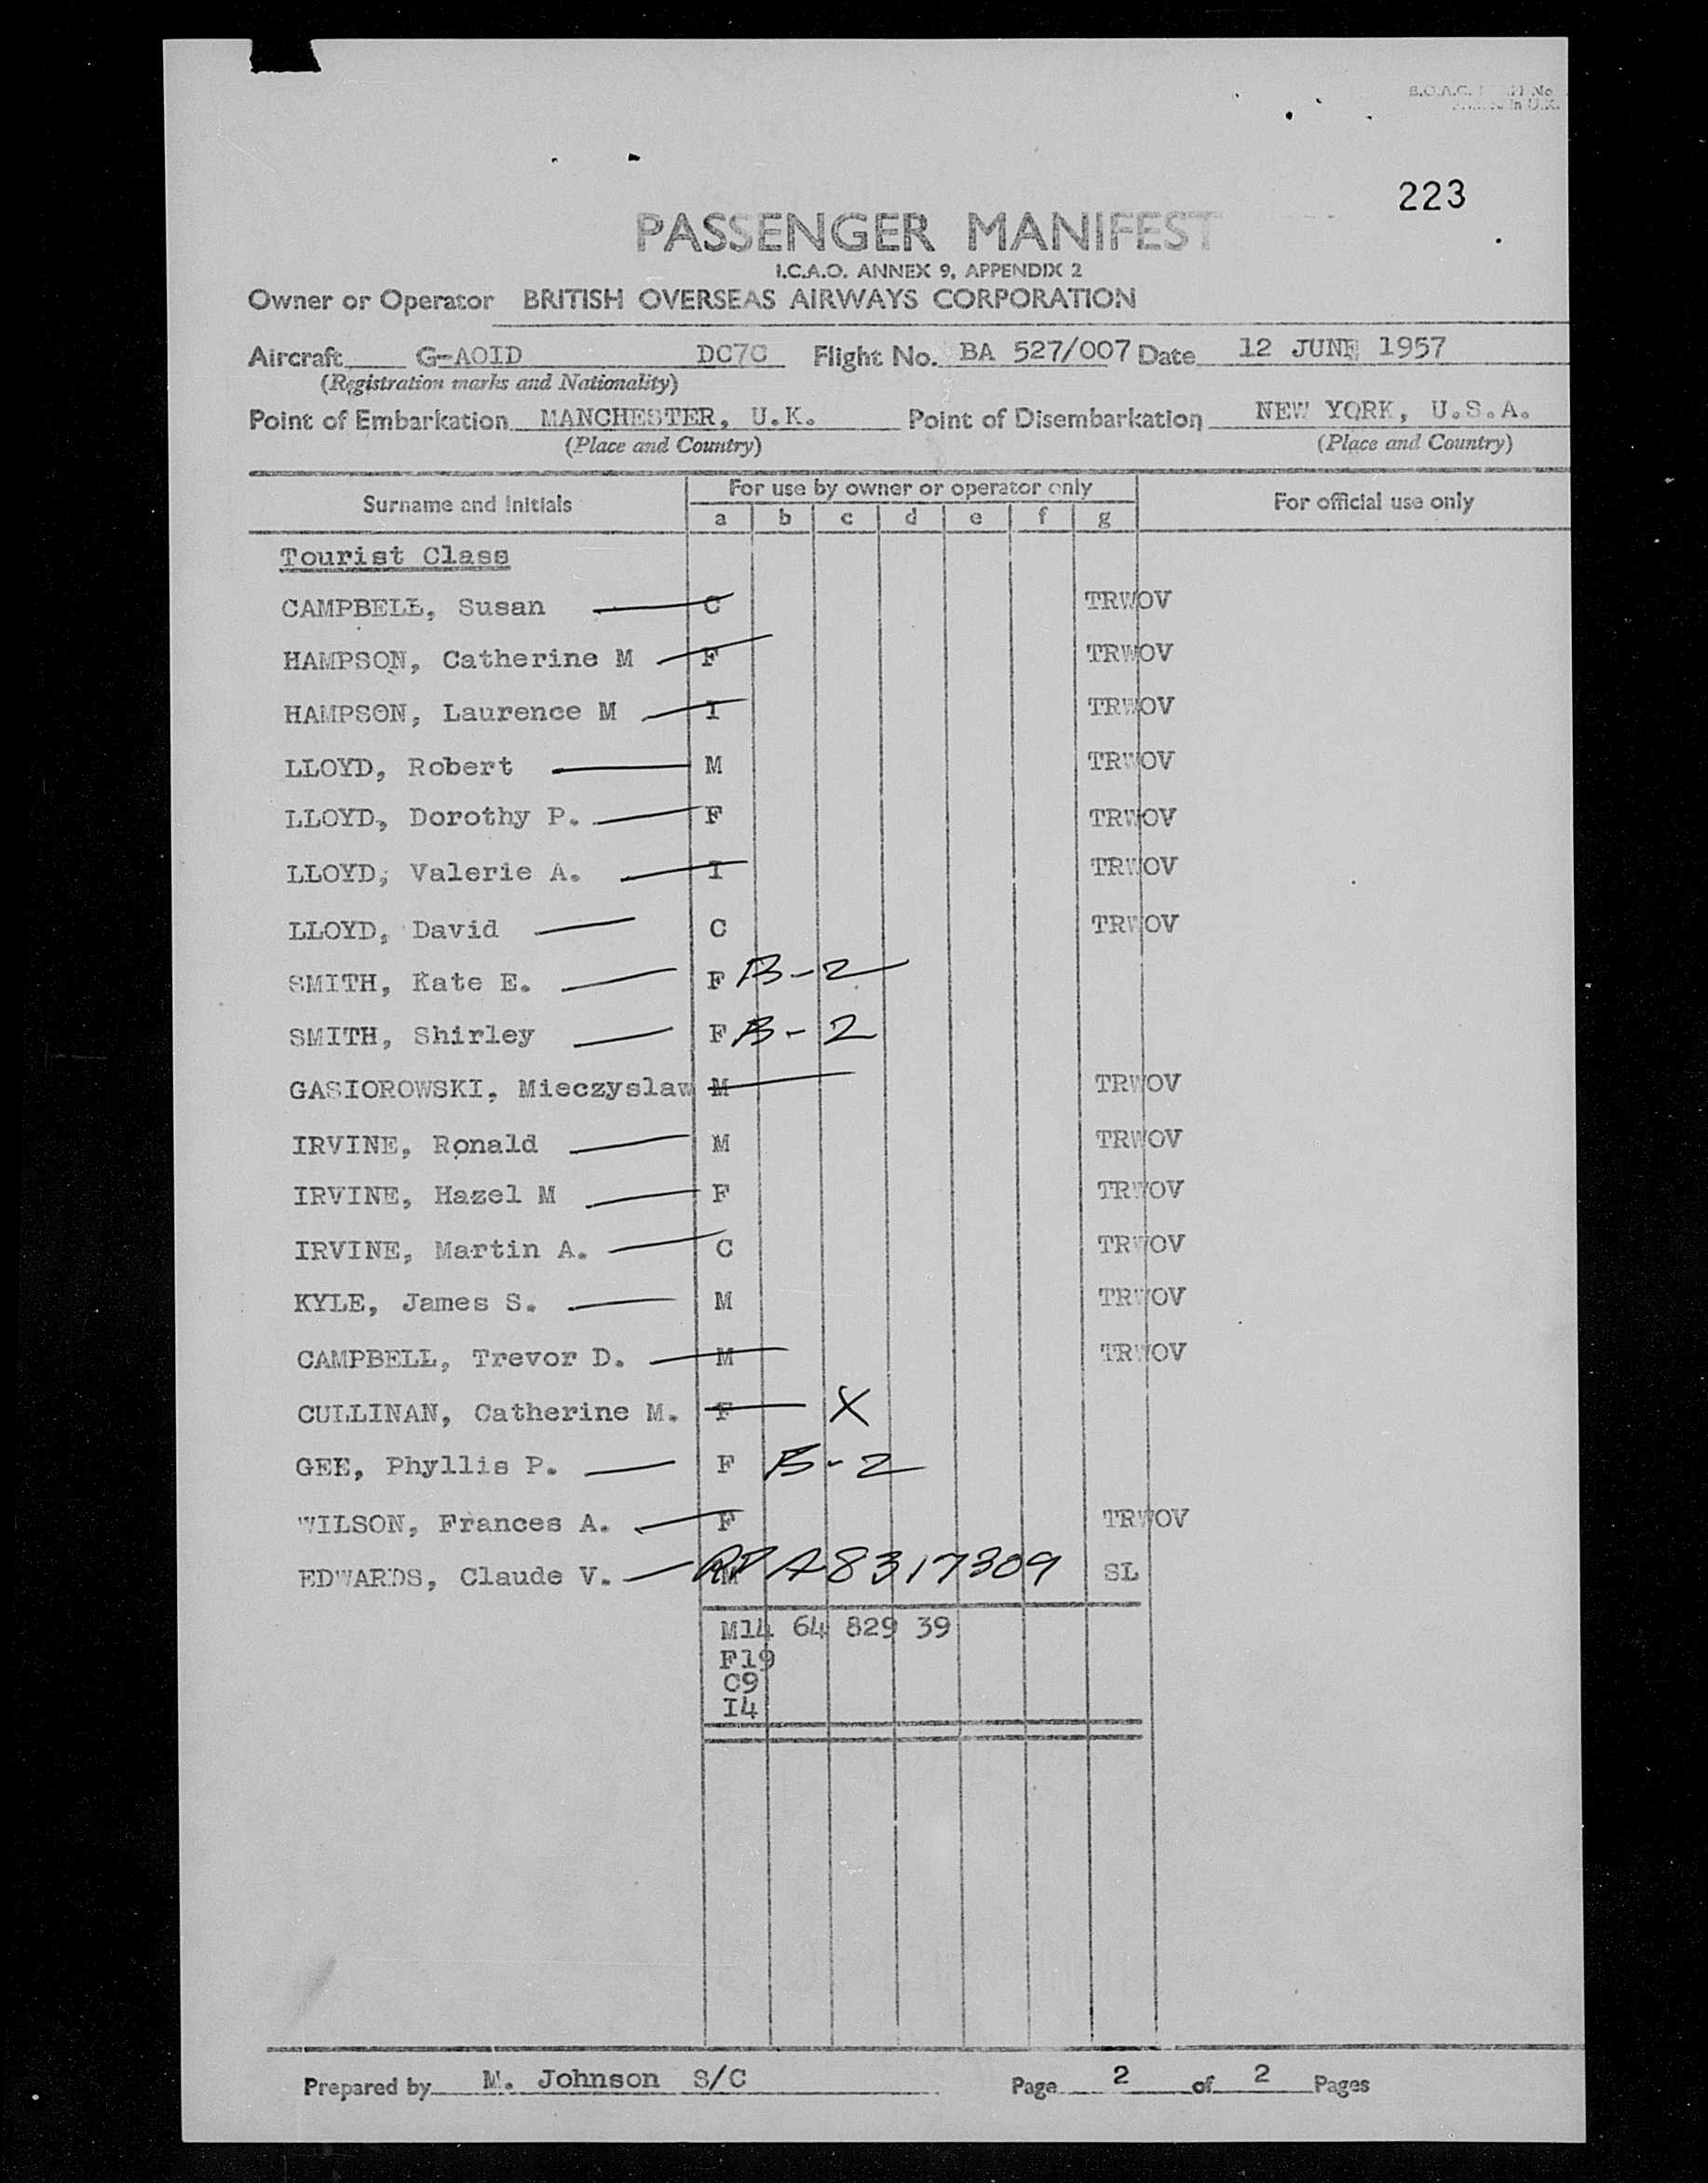 B.O.A.C. No
in U.K.
223
PASSENGER MANIFEST
I.C.A.O. ANNEX 9, APPENDIX 2
Owner or Operator BRITISH OVERSEAS AIRWAYS CORPORATION
Aircraft G-AOID DC7C Flight No. BA 527/007 Date 12 JUNE 1957
(Registration marks and Nationality)
Point of Embarkation MANCHESTER, U.K. Point of Disembarkation NEW YORK, U.S.A.
(Place and Country) (Place and Country)
Surname and Initials For use by owner or operator only For official use only
a b c d e f g
Tourist Class
CAMPBELL, Susan C TRWOV
HAMPSON, Catherine M F TRWOV
HAMPSON, Laurence M I TRWOV
LLOYD, Robert M TRWOV
LLOYD, Dorothy P. F TRWOV
LLOYD, Valerie A. I TRWOV
LLOYD, David C TRWOV
SMITH, Kate E. F B-2
SMITH, Shirley F B-2
GASIOROWSKI, Mieczyslaw M TRWOV
IRVINE, Ronald M TRWOV
IRVINE, Hazel M F TRWOV
IRVINE, Martin A. C TRWOV
KYLE, James S. M TRWOV
CAMPBELL, Trevor D. M TRWOV
CULLINAN, Catherine M. F X
GEE, Phyllis P. F B-2
WILSON, Frances A. F TRWOV
EDWARDS, Claude V. M A8317309 SL
M14 64 829 39
F19
C9
I4
Prepared by M. Johnson S/C Page 2 of 2 Pages